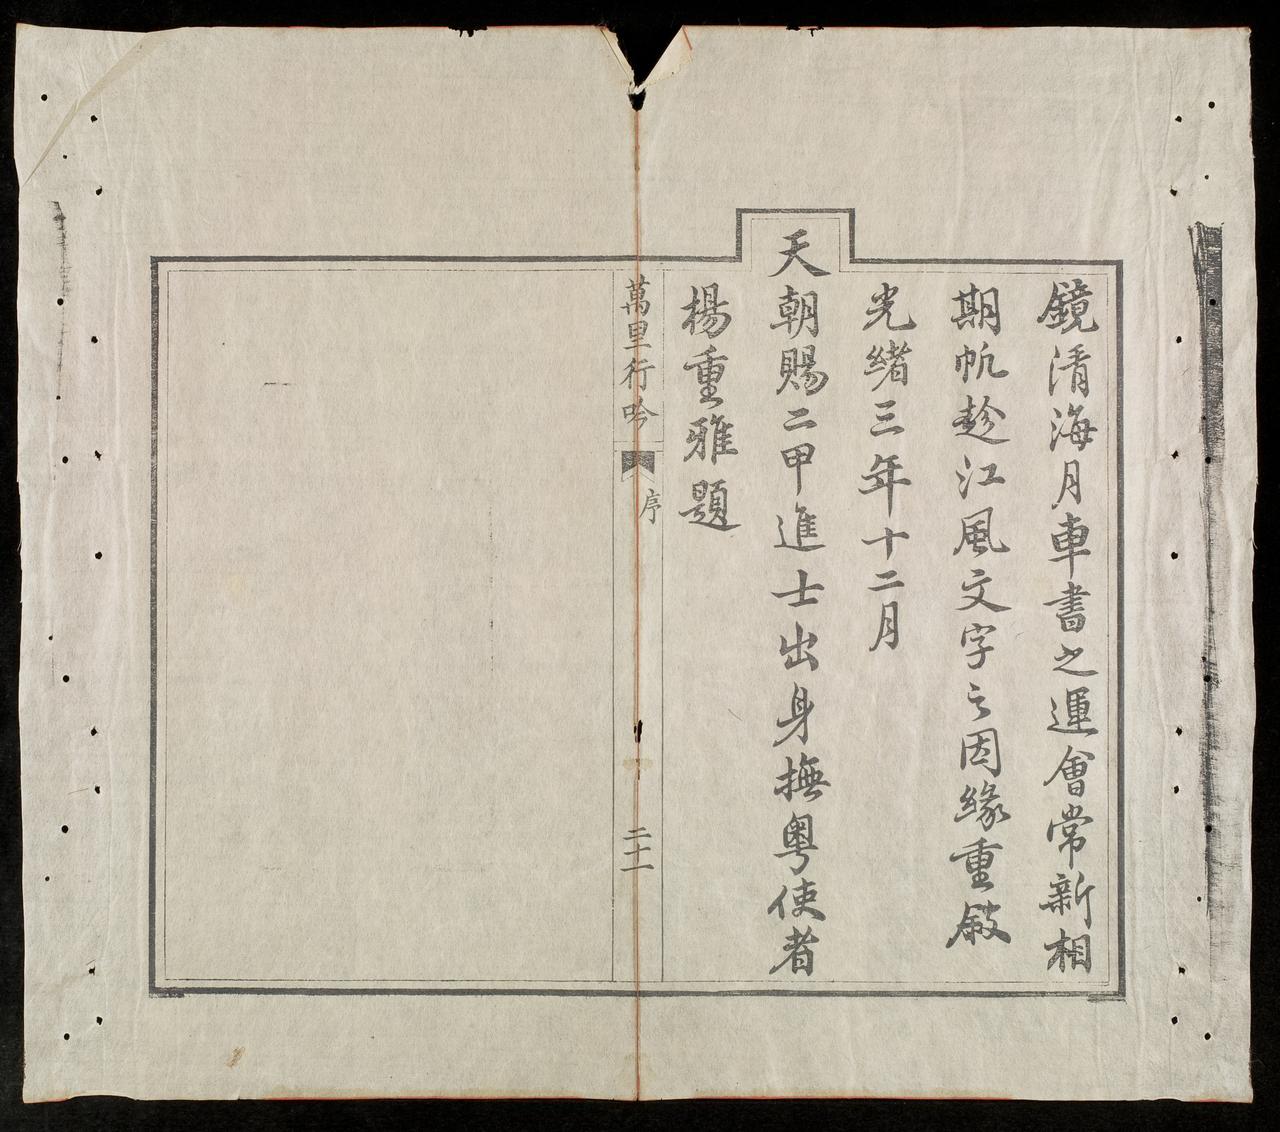 鏡清海月車書之運會常新相
期帆趁江風文字之因緣重敍
光緒三年十二月
天朝賜二甲進士出身撫粵使者
楊重雅題
萬里行吟
序
二十一